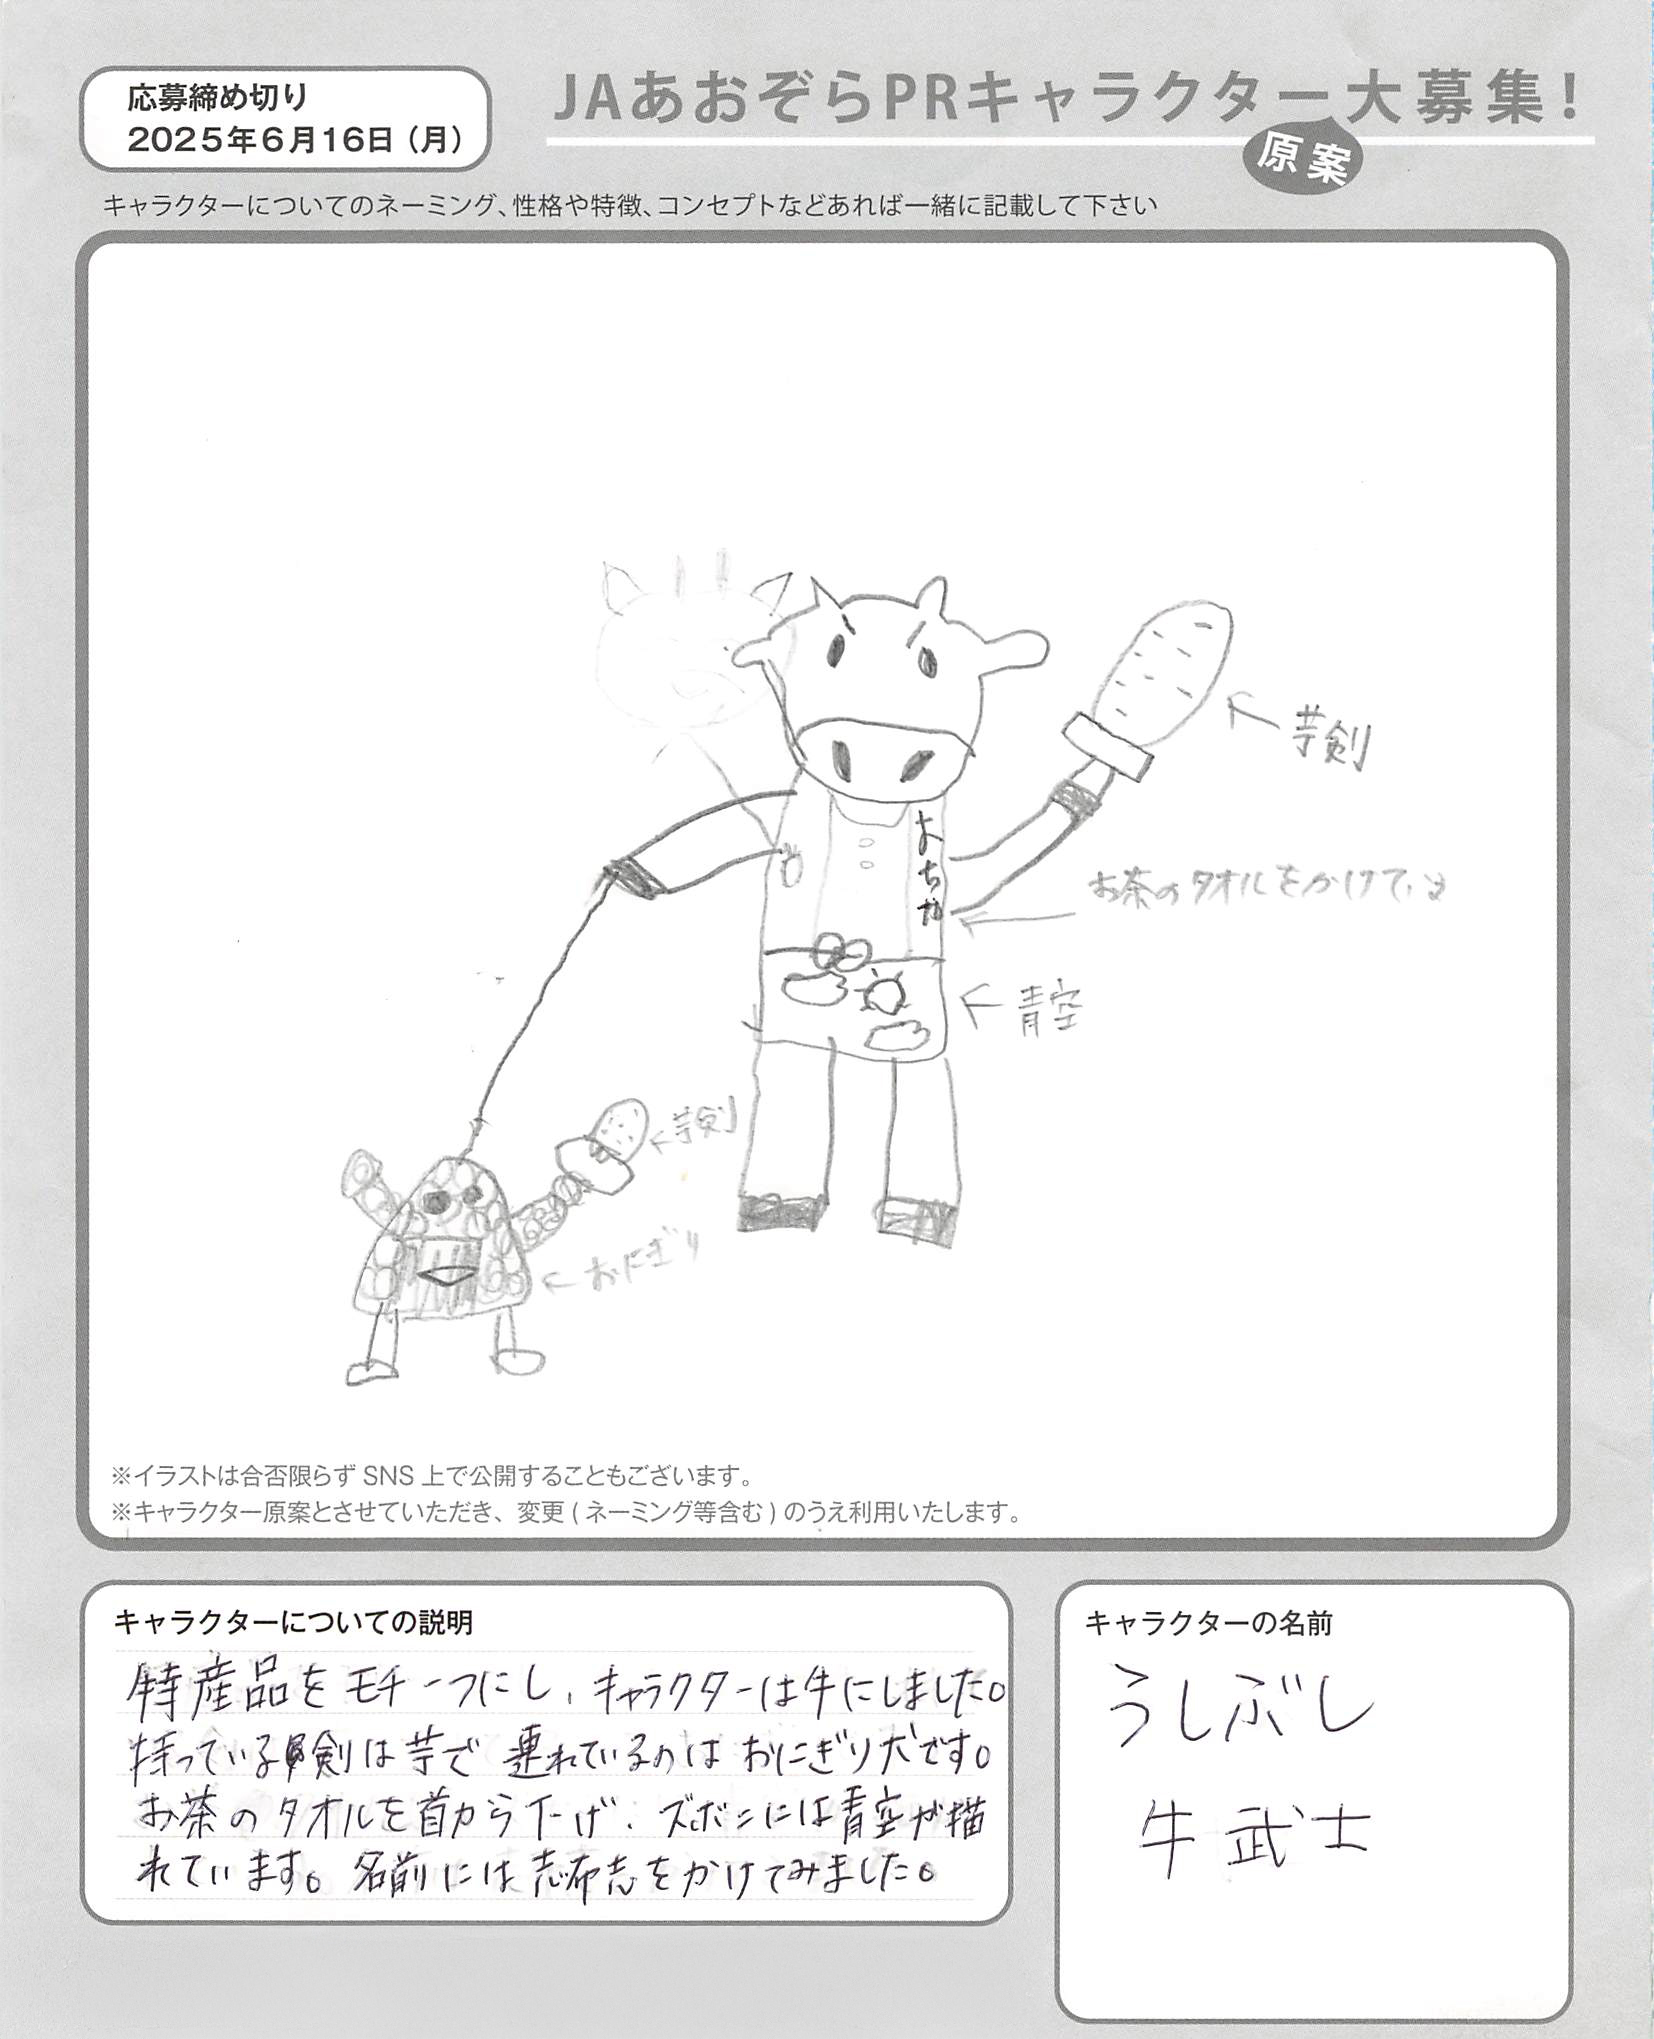 応募締め切り
2025年6月16日（月）
JAあおぞらPRキャラクター大募集！
原案
キャラクターについてのネーミング、性格や特徴、コンセプトなどあれば一緒に記載して下さい
芋剣
おちゃ
お茶のタオルをかけている
青空
芋剣
おにぎり
※イラストは合否限らず SNS 上で公開することもございます。
※キャラクター原案とさせていただき、変更(ネーミング等含む)のうえ利用いたします。
キャラクターについての説明
特産品をモチーフにし、キャラクターは牛にしました。
持っている剣は芋で連れているのはおにぎり犬です。
お茶のタオルを首から下げ、ズボンには青空が描
れています。名前には志布志をかけてみました。
キャラクターの名前
うしぶし
牛武士